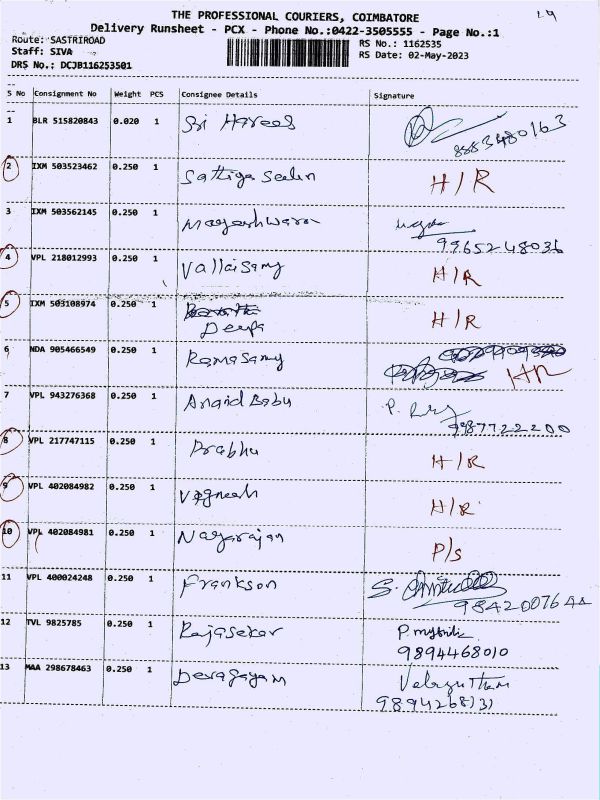 THE PROFESSIONAL COURIERS, COIMBATORE
Delivery Runsheet - PCX - Phone No.:0422-3505555 - Page No.:1
Route: SASTRIROAD RS No.: 1162535
Staff: SIVA RS Date: 02-May-2023
DRS No.: DCJB116253501
S No Consignment No Weight PCS Consignee Details Signature
1 BLR 515820843 0.020 1 Sri Harees 8883480163
2 IXM 503523462 0.250 1 Sattiga H/R
3 IXM 503562145 0.250 1 Mageshwaran 9965248036
4 VPL 218012993 0.250 1 Vallaisamy H/R
5 IXM 503108974 0.250 1 Deepa H/R
6 NDA 905466549 0.250 1 Ramasamy HR
7 VPL 943276368 0.250 1 Anand Babu P.
9987722200
8 VPL 217747115 0.250 1 Prabhu H/R
9 VPL 402084982 0.250 1 Vignesh H/R
10 VPL 402084981 0.250 1 Nagarajan P/s
11 VPL 400024248 0.250 1 Frankson S.
12 TVL 9825785 0.250 1 Rajasekar P.mythili
9894468010
13 MAA 298678463 0.250 1 Devasagayam
9894268131